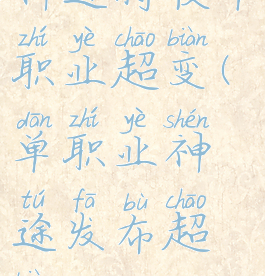 zhí yè chāo biàn
职业超变(
dān zhí yè shén
单职业神
tú fā bù chāo
途发布超